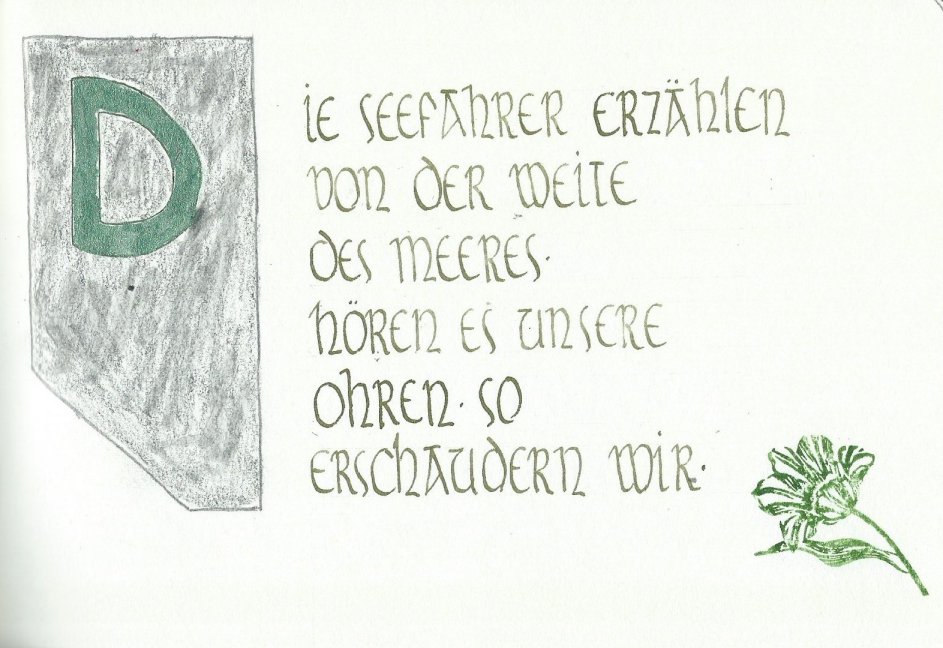 DIE SEEFAHRER ERZÄHLEN
VON DER WEITE
DES MEERES.
HÖREN ES UNSERE
OHREN. SO
ERSCHAUDERN WIR.